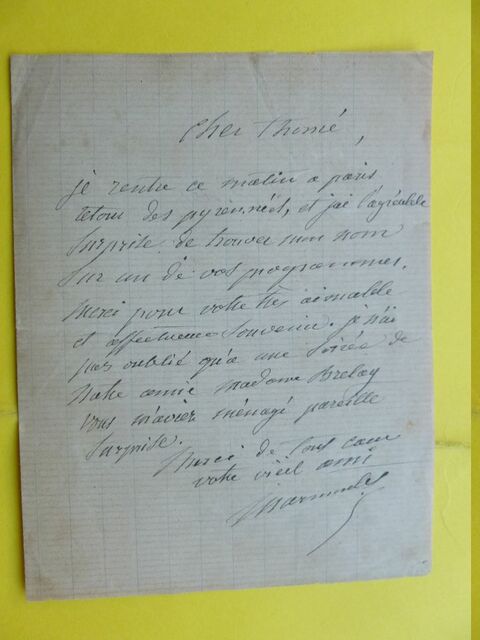 Cher Thomé,
je rentre ce matin a paris
retour des pyrennées, et j'ai l'agréable
surprise de trouver mon nom
sur un de vos programmes.
merci pour votre très aimable
et affectueux souvenir. je n'ai
pas oublié qu'a une soirée de
notre amie madame Trelay
vous m'aviez ménagé pareille
surprise.
Merci de tout cœur
votre vieil ami
Marmontel